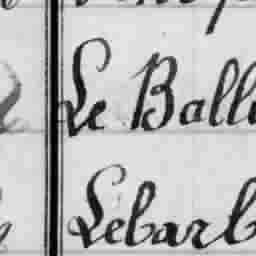 Le Ball
Lebarb